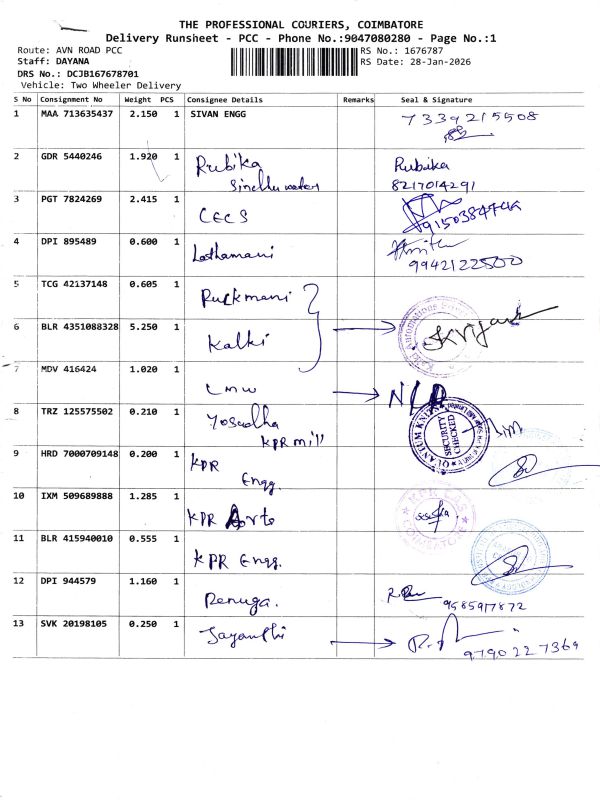 THE PROFESSIONAL COURIERS, COIMBATORE
Delivery Runsheet - PCC - Phone No.:9047080280 - Page No.:1
Route: AVN ROAD PCC
RS No.: 1676787
Staff: DAYANA
RS Date: 28-Jan-2026
DRS No.: DCJB167678701
Vehicle: Two Wheeler Delivery
S No Consignment No Weight PCS Consignee Details Remarks Seal & Signature
1 MAA 713635437 2.150 1 SIVAN ENGG 7339215508
2 GDR 5440246 1.920 1 Rubika Rubika
Sindhu 8217014291
3 PGT 7824269 2.415 1 CECS
4 DPI 895489 0.600 1 Lathamani
9942122500
5 TCG 42137148 0.605 1 Rukmani
6 BLR 4351088328 5.250 1 Kalki
7 MDV 416424 1.020 1 LMW
8 TRZ 125575502 0.210 1 Yosodha
KPR mill
QUANTUM KNITS
SECURITY CHECKED
9 HRD 7000709148 0.200 1 KPR
Engg.
10 IXM 509689888 1.285 1 KPR Arts
COIMBATORE
11 BLR 415940010 0.555 1 KPR Engg.
12 DPI 944579 1.160 1 Renuga.
9585917872
13 SVK 20198105 0.250 1 Jayanthi
9790227369